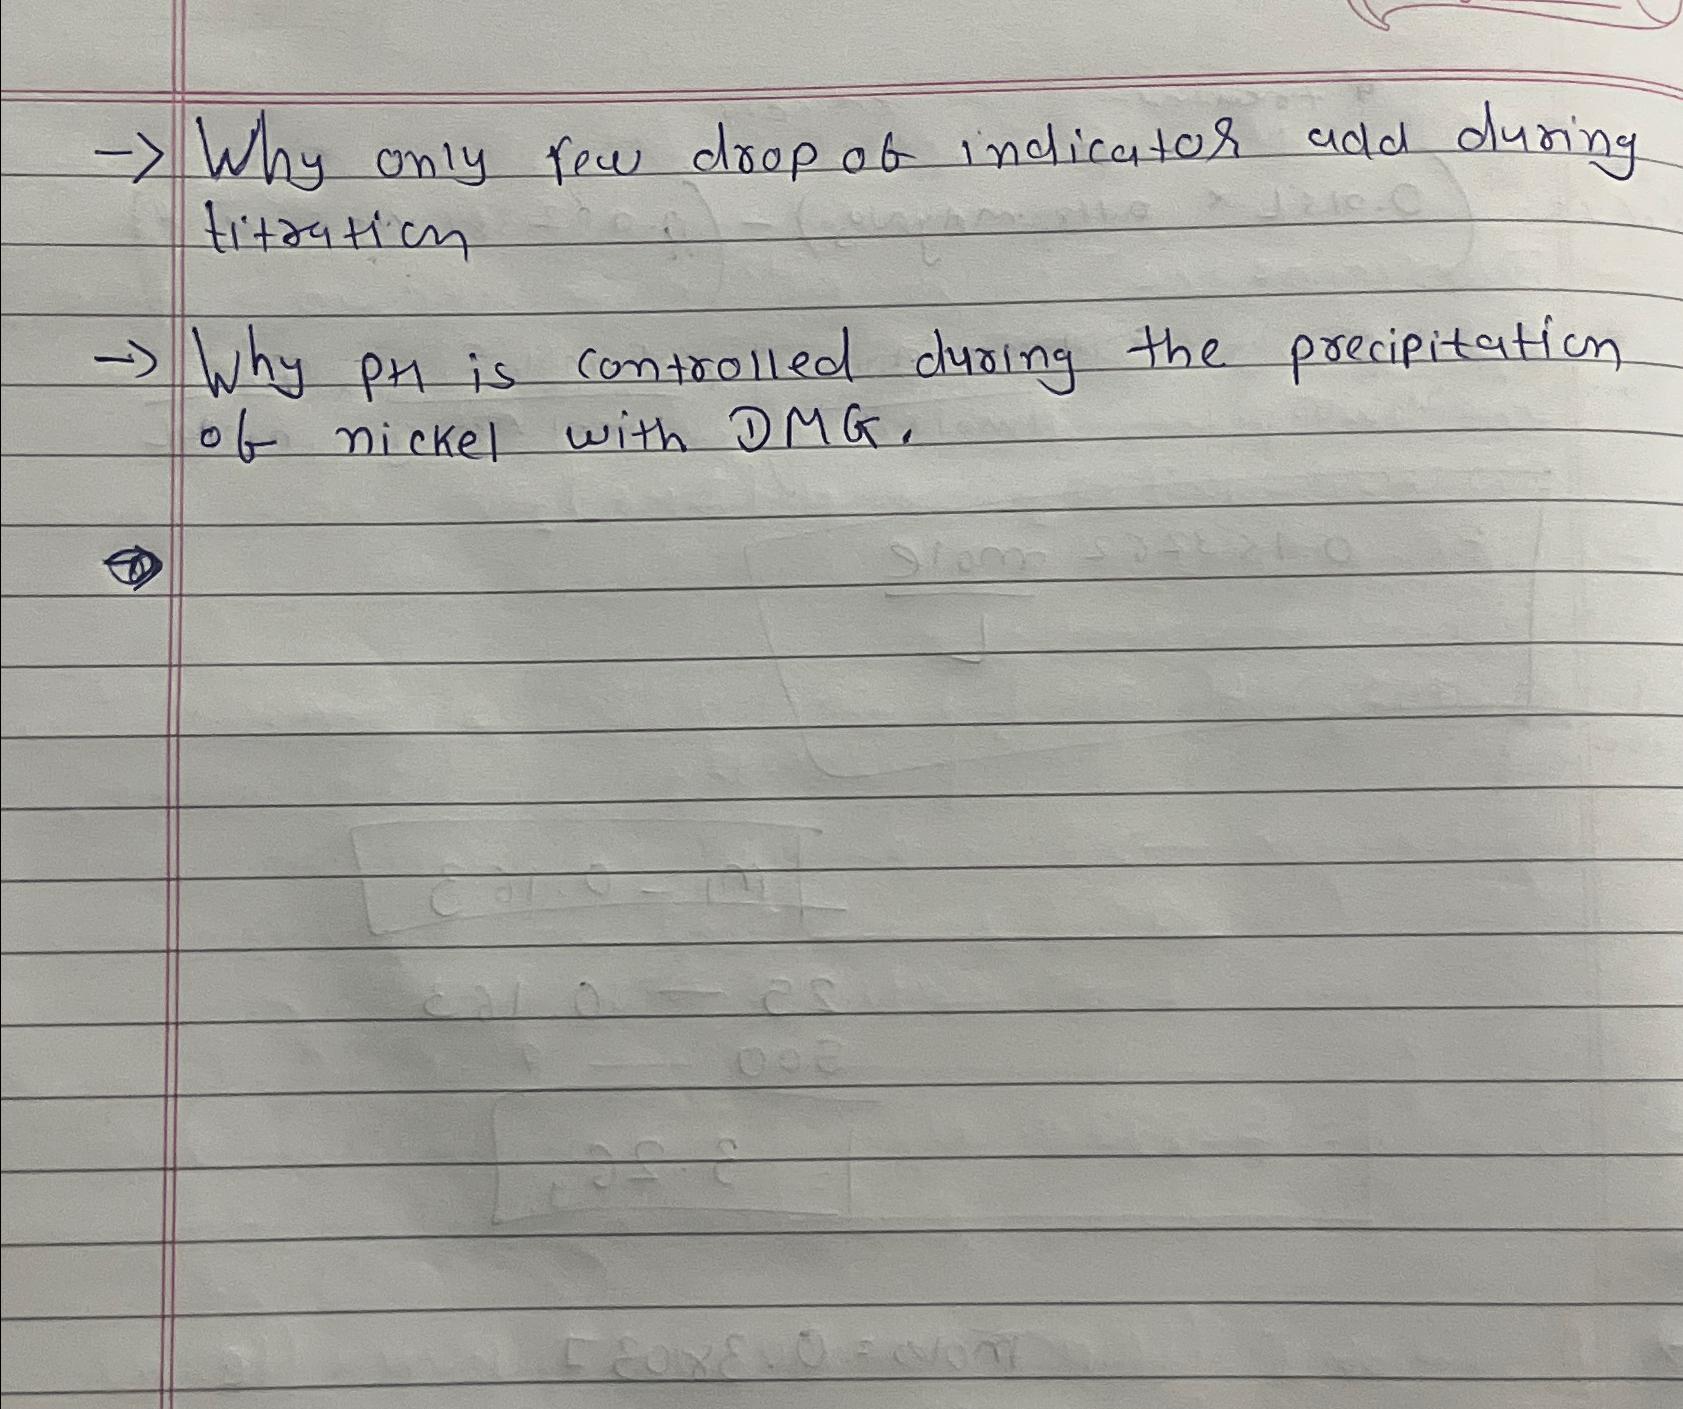 → Why only few drop of indicator add during
titration
→ Why pH is controlled during the precipitation
of nickel with DMG.